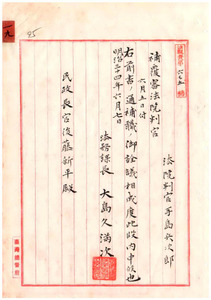 補覆審法院判官
法院判官手島兵次郎
六月五日付
右前書ノ通補職ノ御詮議相成度此段内申候也
明治三十四年六月七日
法務課長 大島久満次
民政長官後藤新平殿
臺灣總督府
一九
45